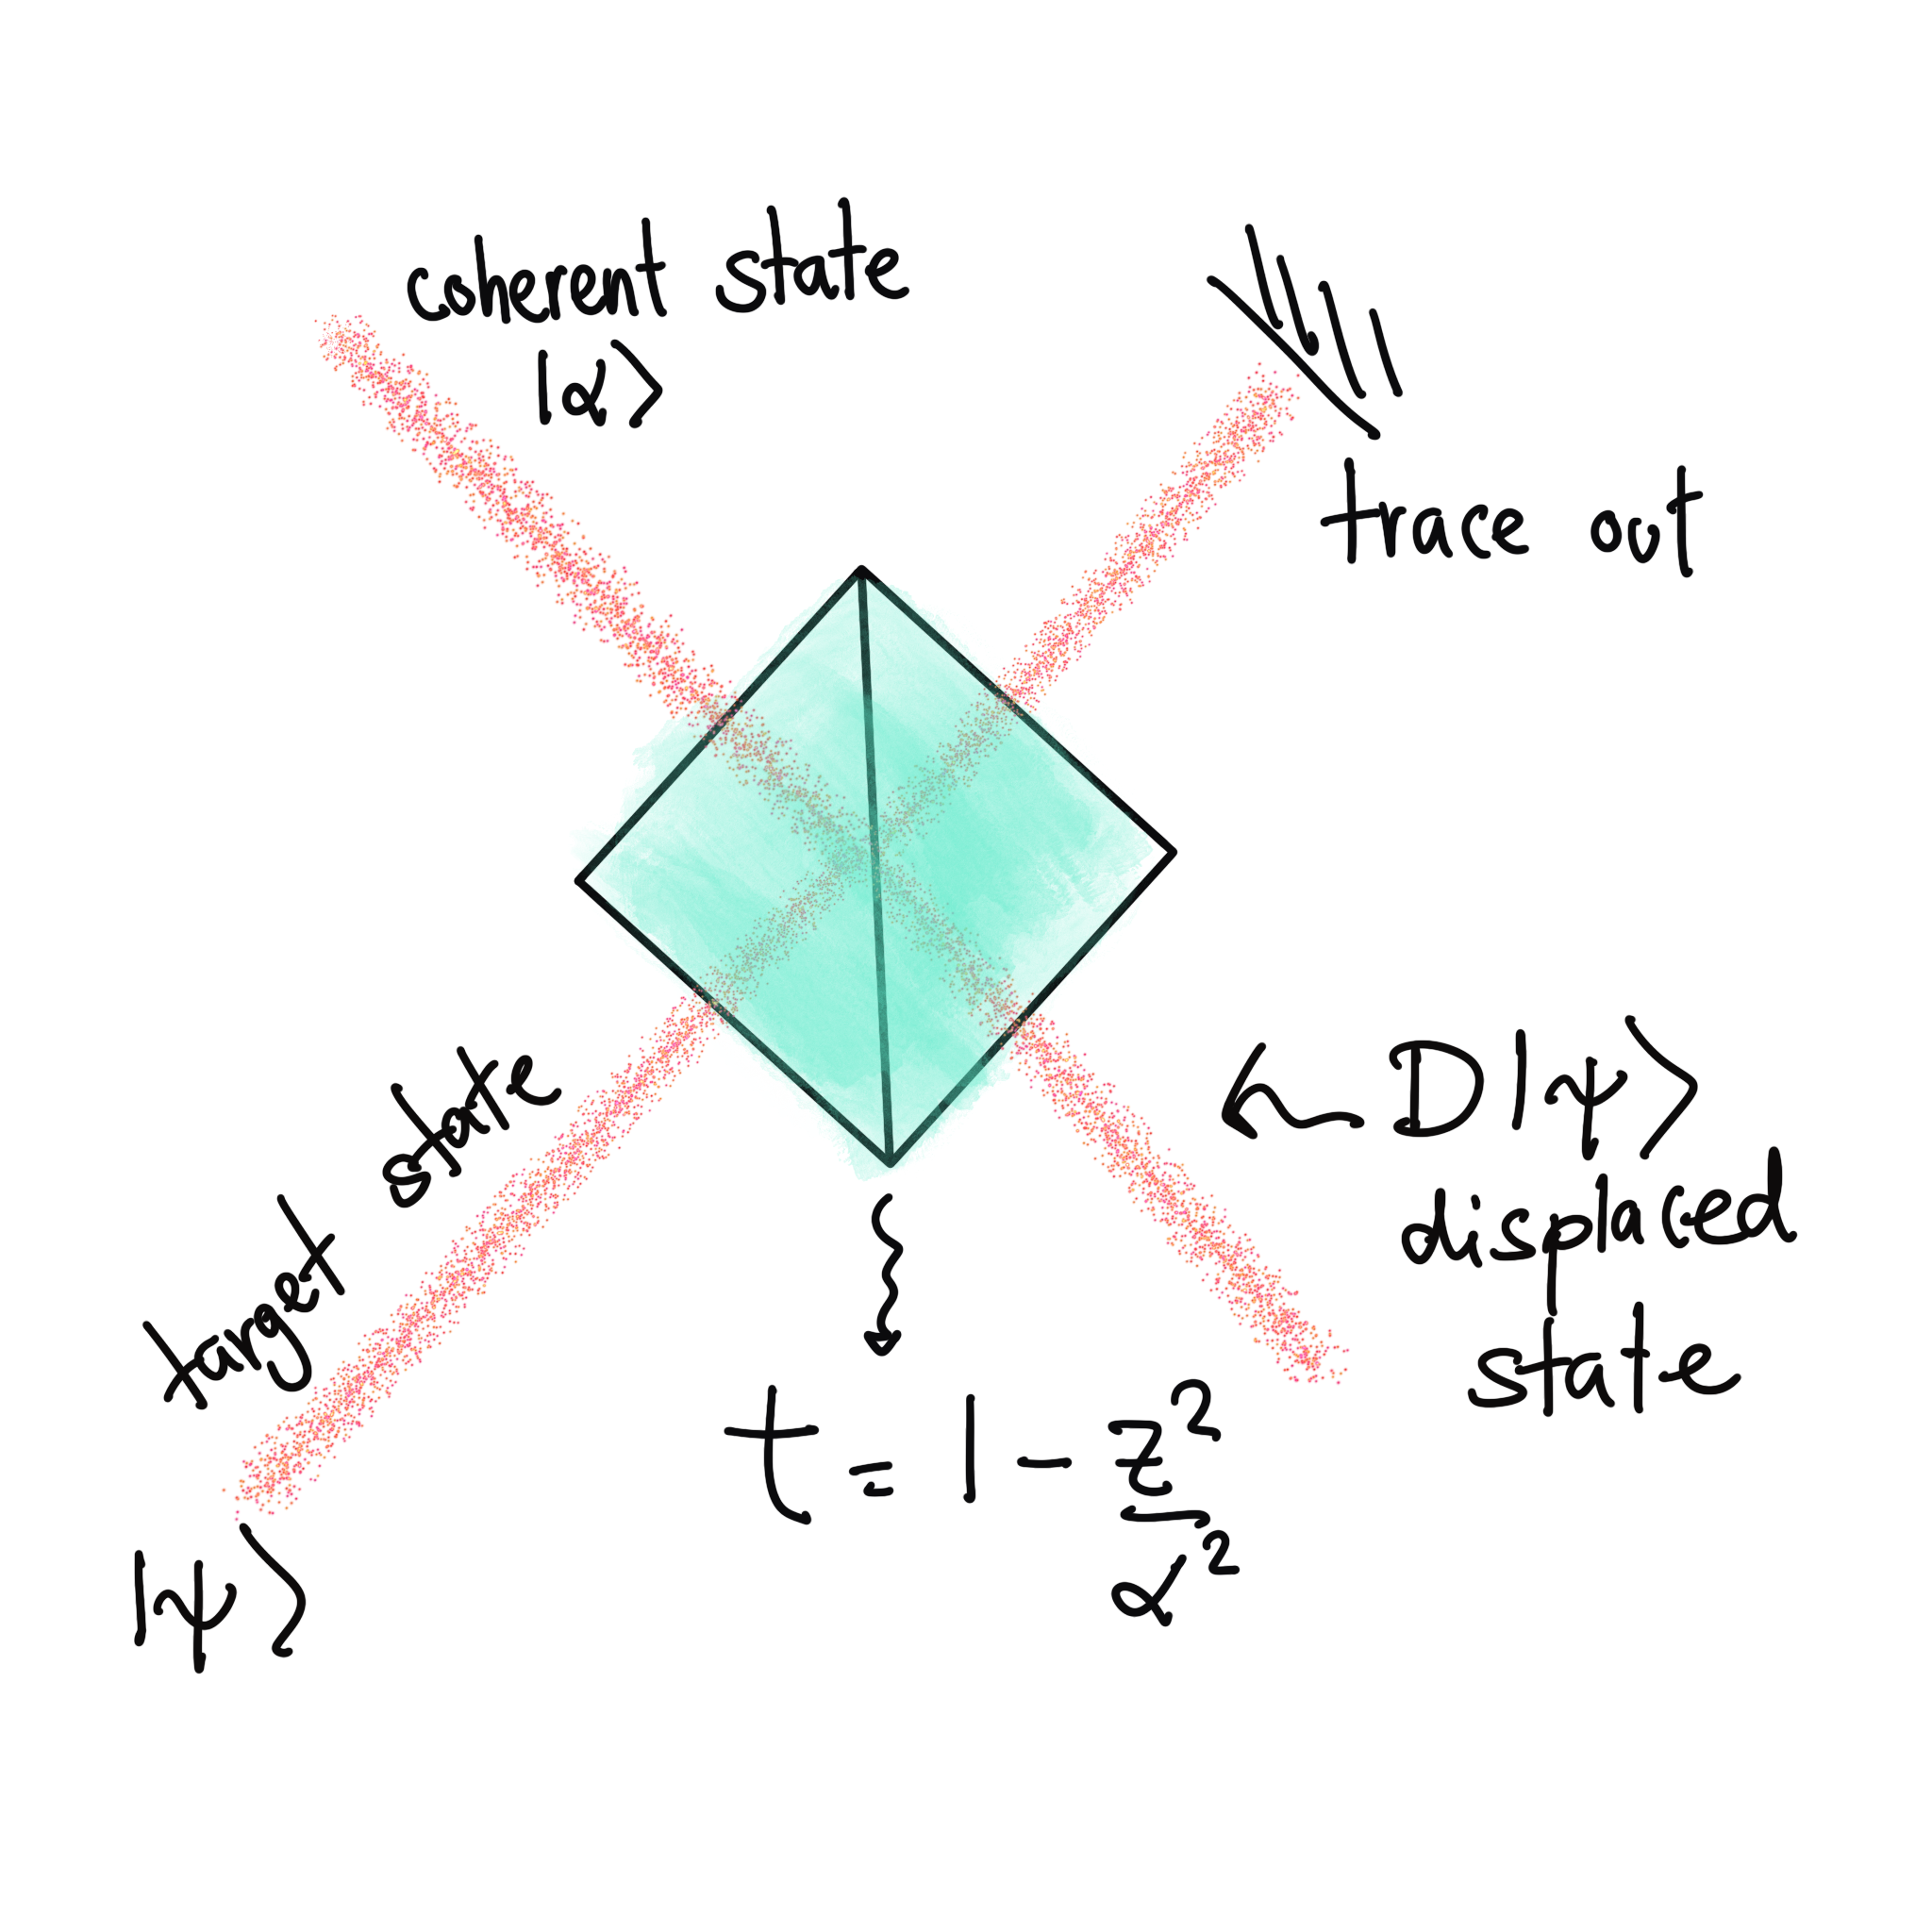 coherent state
|α⟩
trace out
target state
|ψ⟩
D|ψ⟩
displaced
state
t = 1 - z²/α²